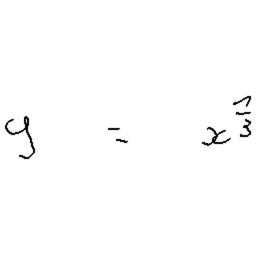 y = x^{\frac{1}{3}}